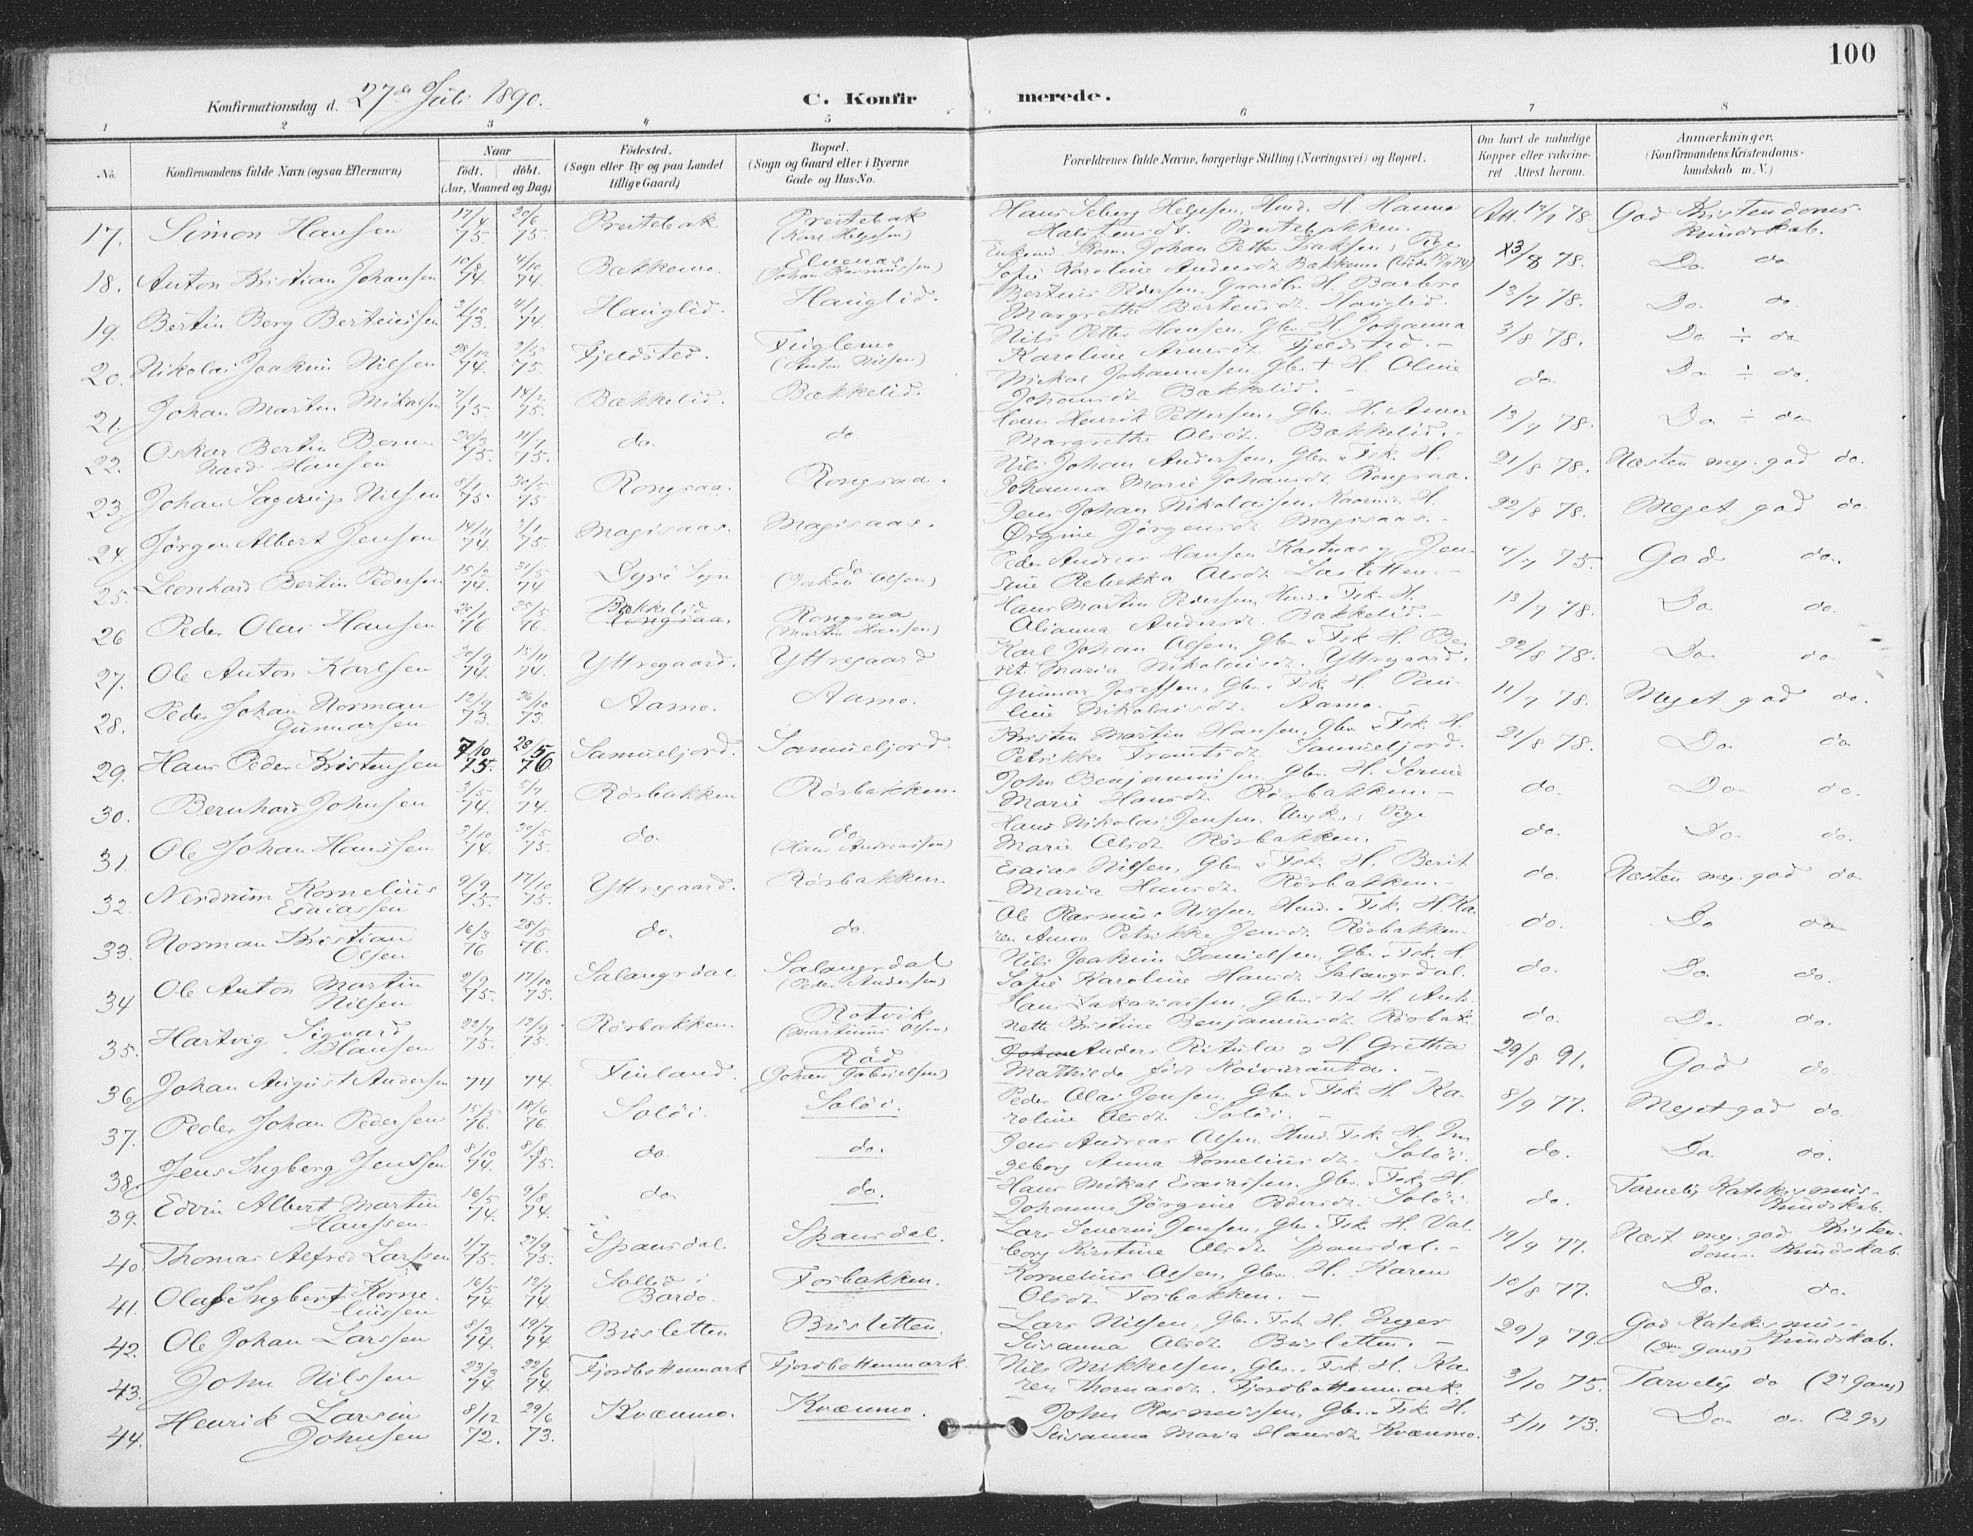 100
Konfirmationsdag d. 27de Juli 1890. C. Konfirmerede.
1 2 3 4 5 6 7 8
No. Konfirmandens fulde Navn (ogsaa Efternavn) Naar født. døbt. (Aar, Maaned og Dag) Fødested. (Sogn eller By og paa Landet tillige Gaard) Bopæl. (Sogn og Gaard eller i Byerne Gade og Hus-No. Forældrenes fulde Navne, borgerlige Stilling (Næringsvei) og Bopæl. Om havt de naturlige Kopper eller vaccineret. Attest herom. Anmærkninger. (Konfirmandens Kristendomskundskab m. V.)
17. Simon Hansen 17/4 75. 20/6 75. Preitebak Preitebak (Karl Helgesen) Hans Seberg Helgesen, Hmd. H. Hanna Att. 12/7 78. God Kristendoms-
Halstensdt. Preitebakken. kundskab.
18. Anton Kristian Johansen 10/8 74. 4/10 74. Bækkemo. Elvenæs (Johan Rasmussen) Johan Petter Isaksen, Pige 13/8 78. Do do
Sofie Karoline Andersdt. Bækkemo
19. Bertin Berg Bertinussen 3/12 73. 4/1 74. Hauglid. Hauglid. Bertinus Pedersen, Gaardbr. H. Barbro 13/7 78. Do. do
Margrethe Bertinsdt. Hauglid.
20. Nikolai Joakim Nilsen 28/12 74. 2/5 75. Fjeldsted. Fuglemo (Anton Nilsen) Nils Petter Hansen, Gbr. H. Johanna 3/8 78. Do ÷ do
Karoline Arnesdt. Fjeldsted. -
21. Johan Martin Mikalsen 2/1 75. 14/2 75. Bækkelid. Bækkelid. Mickal Johannesen, Gbr. + H. Oline do Do ÷ do.
Johansdt. Bækkelid. -
22. Oskar Bertin Bern- 20/3 75. 11/7 75. do. do Hans Henrik Pettersen, Gbr. H. Anne 13/7 78. Do ÷ do
hard Hansen Margrethe Olsdt. Bækkelid. -
23. Johan Sagerup Nilsen 2/1 75. 30/5 75 Rongsaa. Rongsaa. Nils Johan Andersen, Gbr. & Fsk. H. 21/8 78. Næsten meg. god do.
Johanna Marie Johansdt. Rongsaa.
24. Jörgen Albert Jensen 14/11 74. 2/1 75. Magisaas. Magisaas. Jens Johan Nikolaisen, H. 22/8 78. Meget god do.
Örgine Jörgensdt. Magisaas. -
25. Leonhard Bertin Pedersen 15/2 74. 31/5 74 Dyrö Sogn do (Jakob Olsen) Peder Andreas Hansen Kastnæs og Jen- 7/7 75. God do.
sine Rebekka Olsdt. -
26 Peder Olai Hansen 20/1 76 25/5 76. Bækkelid Rongsaa. Rongsaa (Martin Hansen) Hans Martin Pedersen, Hmd. & Fsk. H. 13/7 78. Do do.
Olianna Andersdt. Bækkelid. -
27. Ole Anton Karlsen 30/9 74. 15/11 74. Yttregaard. Yttregaard Karl Johan Olsen, Gbr. & Fsk. H. Be- 22/8 78. Do do.
rit Maria Nikolaisdt. Yttregaard.
28. Peder Johan Norman 12/9 73. 26/10 73. Aamo. Aamo. Gunnar Josefsen, Gbr. & Fsk. H. Pau- 11/7 78. Meget god do.
Gunnarsen line Nikolaisdt. Aamo. -
29. Hans Peder Kristensen 7/10 75. 28/5 76 Samueljord. Samueljord. Kristen Martin Hansen, Gbr. & Fsk. H. 21/8 78. Do do
Petrikke Frantsdt. Samueljord.
30. Bernhard Johnsen 3/5 74. 5/7 74. Rösbakken Rösbakken. John Benjaminsen, Gbr. H. Serine do. Do do.
Marie Hansdt. Rösbakken. -
31. Ole Johan Hanssen 3/10 74. 30/5 75. do do (Hans Andreassen) Hans Nikolai Jensen, Ungk., Pige do. Do. do.
Marie Olsdt. Rösbakken. -
32. Nerdrum Kornelius 9/9 75. 17/10 75. Yttregaard. Rösbakken. Esaias Nilsen, Gbr. & Fsk. H. Berit do. Næsten meg. god do
Esaiassen Maria Hansdt. Rösbakken. -
33. Norman Kristian 16/3 76 28/5 76. do. do. Ole Rasmus Nilsen Hmd. & Fsk. H. Ka- do. Do do
Olsen ren Anna Petrikke Jensdt. Rösbakken.
34 Ole Anton Martin 9/9 75. 17/10 75. Salangsdal. Salangsdal (Peder Andersen) Nils Joakim Danielsen, Gbr. & Fsk. H. do. Do. do.
Nilsen Sofie Karoline Hansdt. Salangsdal.
35. Hartvig Sigvard 22/7 75. 12/9 75. Rösbakken. Rotvik (Martinus Olsen) Hans Sakariasen, Gbr. & Fsk. H. Anto- do. Do. do.
Hansen nette Kristine Benjaminsdt. Rösbak.
36. Johan August Andersen 74 74. Finland. Röd (Johan Gabrielsen) Johan Anders Ritula & H. Gretha 29/8 91. God do.
Mathilde född Koivuranta. -
37. Peder Johan Pedersen 15/5 76. 18/6 76. Solöi. Solöi. Peder Olai Jensen, Gbr. & Fsk. H. Ka- 8/9 77. Meget god do.
roline Olsdt. Solöi. -
38. Jens Ingberg Jenssen 8/10 74. 8/8 75. do. do. Jens Andreas Olsen, Hmd. Fsk. H. In- do. Do. do.
geborg Anna Korneliusdt. Solöi.
39. Edvin Albert Martin 16/5 74. 9/8 74. do do. Hans Mikal Esaiasen, Gbr. & Fsk. H. do. Tarvelig Katekismus-
Hanssen Johanne Jörgine Pedersdt. Solöi. kundskab.
40. Thomas Alfred Larssen 1/7 75. 27/9 75. Spansdal. Spansdal. Lars Severin Jensen, Gbr. & Fsk. H. Val- 19/9 77. Næst. meg. god Kristen-
borg Kirstine Olsdt. Spansdal. - doms Kundskab.
41. Olaf Ingbert Korne- 16/5 74 12/7 74. Sollid i Bardo. Fosbakken. Kornelius Olsen, Gbr. H. Karen 10/8 77. Do. do.
liussen Olsdt. Fosbakken. -
42. Ole Johan Larssen 8/3 74. 19/7 74 Brusletten Brusletten. Lars Nilsen, Gbr. & Fsk. H. Inger 29/9 79. God Katekismus-
Susanna Olsdt. Brusletten. - (2den Gang) kundskab.
43. John Nilssen 23/3 74. 22/6 74. Fjordbottenmark Fjordbottenmark. Nils Mikkelsen, Gbr. & Fsk. H. Ka- 3/10 75. Tarvelig do (2d Gang)
ren Thomasdt. Fjordbottenmark.
44. Henrik Larsin 8/12 72. 29/6 73. Kvænmo. Kvænmo. John Rasmussen, Gbr. & Fsk. H. 5/11 73. Do. do. (2 G.)
Johnsen Susanna Maria Hansdt. Kvænmo.